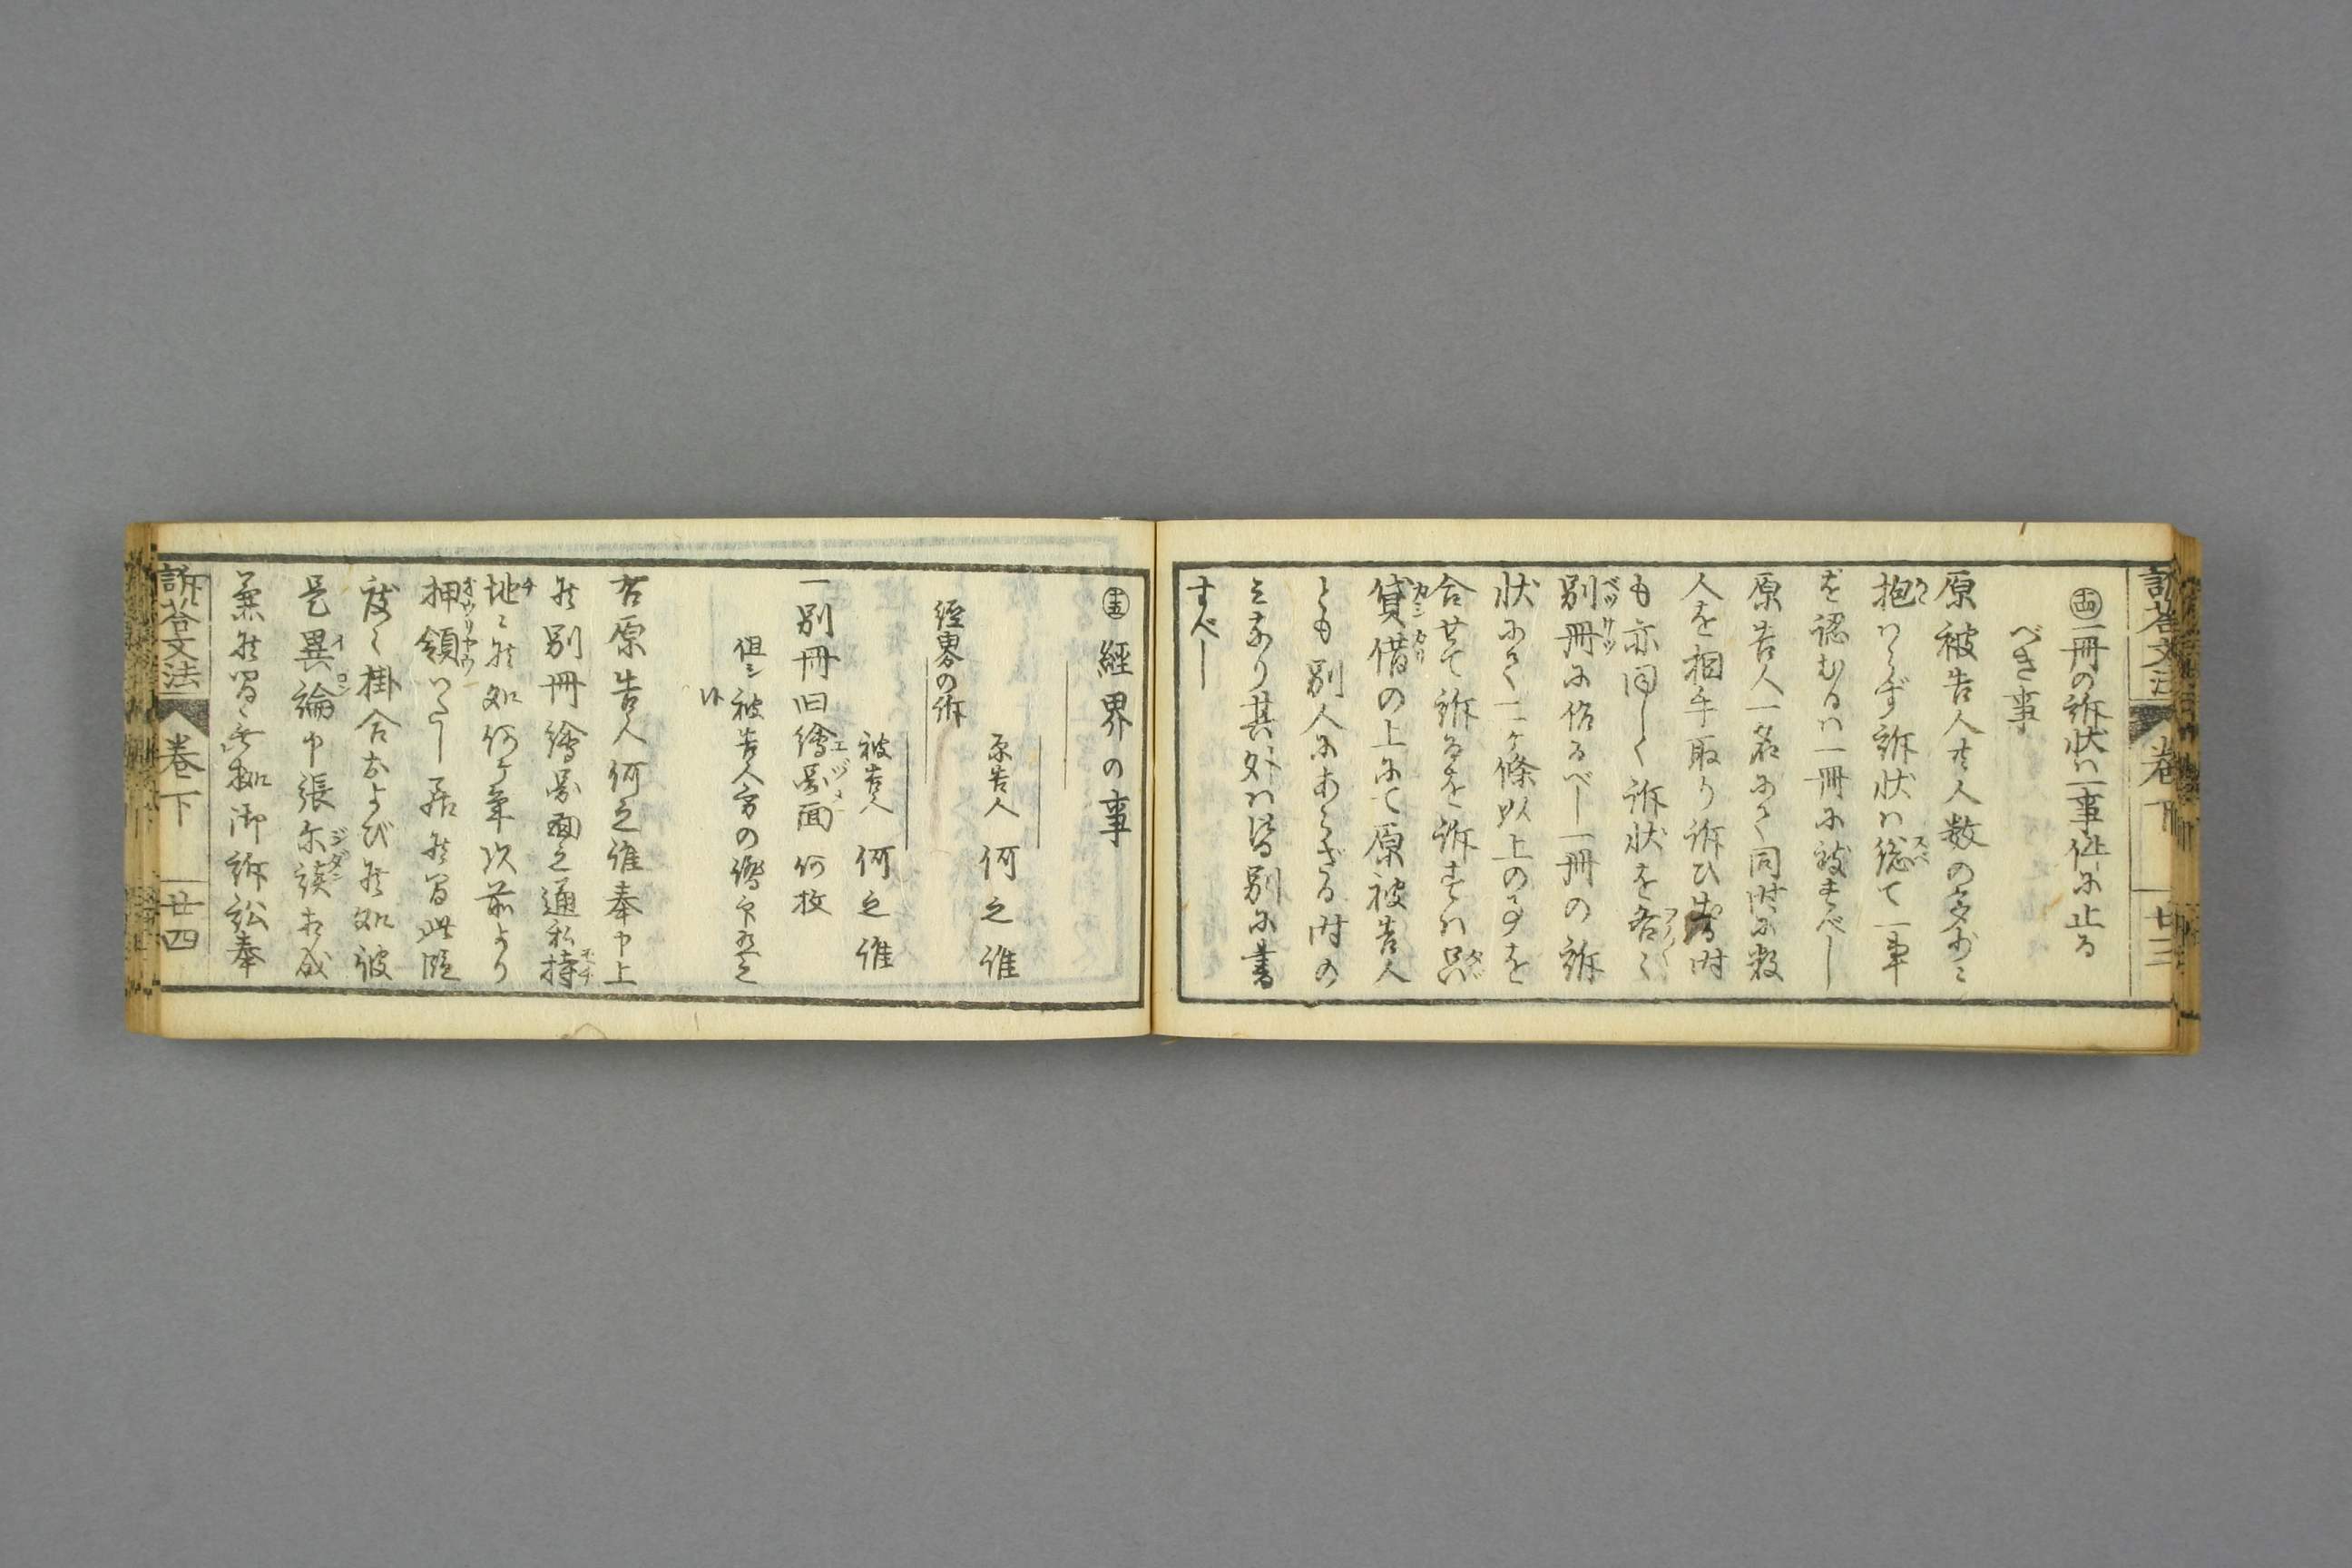 訴答文法 卷下 廿三
十四 一冊の訴状ハ一事件に止る
べき事
原被告人共人数の多少ニ
抱ハらず訴状ハ総て一事
を認むるハ一冊に致すべし
原告人一名にて同時に数
人を相手取り訴ひ出る時
も亦同じく訴状を各々
別冊に作るべし一冊の訴
状にて二ヶ條以上の事を
合せて訴るを訴すハ只
貸借の上にて原被告人
とも別人にあらざる時の
ミあり其外ハ皆別に書
すべし
十五 經界の事
原告人 何之誰
經界の訴
被告人 何之誰
一別冊旧繪圖面 何枚
但シ被告人方の
右原告人何之誰奉申上
候別冊繪圖面之通私持
地ニ候処何ヶ年以前より
押領いたし居候間此段
度々掛合および候処彼
是異論申張示談相成
兼候間無拠御訴訟奉
訴答文法 卷下 廿四